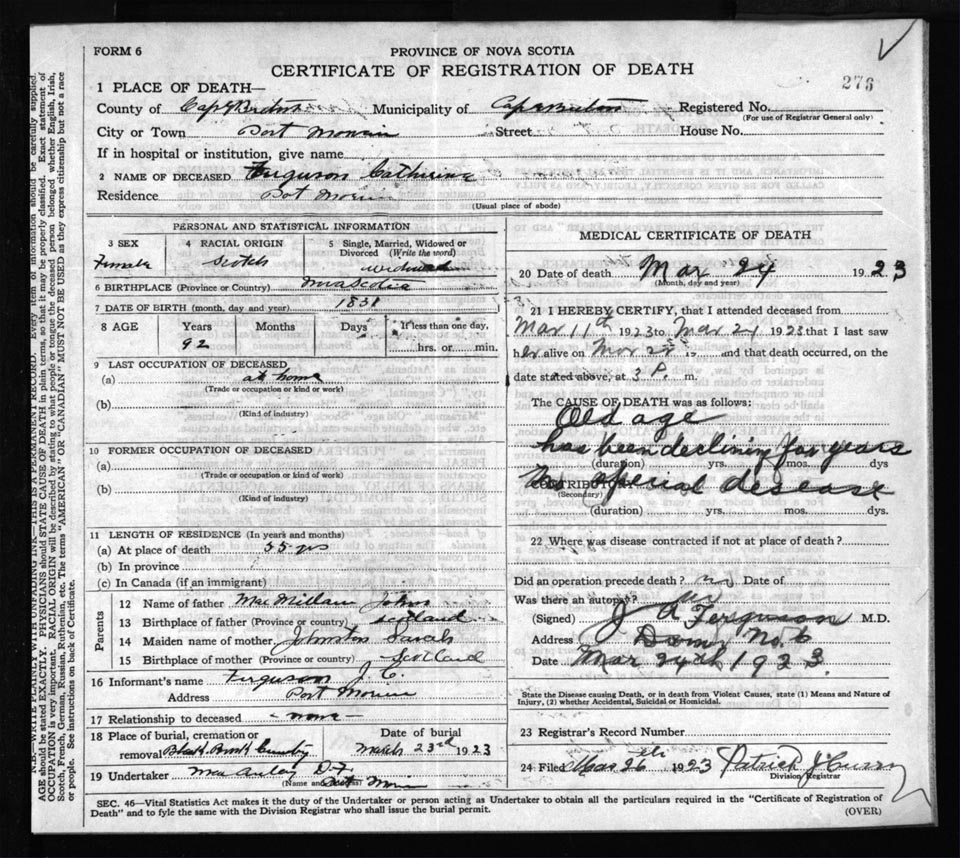 FORM 6
PROVINCE OF NOVA SCOTIA
CERTIFICATE OF REGISTRATION OF DEATH
276
1 PLACE OF DEATH—
County of Cape Breton Municipality of Cape Breton Registered No.
(For use of Registrar General only)
City or Town Port Morien Street House No.
If in hospital or institution, give name
2 NAME OF DECEASED Ferguson Catherine
Residence Port Morien
(Usual place of abode)
PERSONAL AND STATISTICAL INFORMATION
3 SEX
Female
4 RACIAL ORIGIN
Scotch
5 Single, Married, Widowed or
Divorced (Write the word)
widowed
6 BIRTHPLACE (Province or Country) Nova Scotia
7 DATE OF BIRTH (month, day and year) 1831
8 AGE Years Months Days If less than one day,
92 hrs. or min.
9 LAST OCCUPATION OF DECEASED
(a) at home
(Trade or occupation or kind or work)
(b)
(Kind of industry)
10 FORMER OCCUPATION OF DECEASED
(a)
(Trade or occupation or kind of work)
(b)
(Kind of industry)
11 LENGTH OF RESIDENCE (In years and months)
(a) At place of death 55 yrs
(b) In province
(c) In Canada (if an immigrant)
Parents
12 Name of father MacMillan John
13 Birthplace of father (Province or country) Scotland
14 Maiden name of mother Johnston Sarah
15 Birthplace of mother (Province or country) Scotland
16 Informant's name Ferguson J. C.
Address Port Morien
17 Relationship to deceased - none -
18 Place of burial, cremation or
removal Black Brook Cemetery
Date of burial
March 23rd 1923
19 Undertaker MacAuley D. F.
(Name and address) Port Morien
MEDICAL CERTIFICATE OF DEATH
20 Date of death Mar 24 1923
(Month, day and year)
21 I HEREBY CERTIFY, that I attended deceased from
Mar 11th 1923 to Mar 21 1923 that I last saw
her alive on Mar 19 and that death occurred, on the
date stated above, at 3 P. m.
The CAUSE OF DEATH was as follows:
Old age
has been declining for years
(duration) yrs. mos. dys
CONTRIBUTORY
(Secondary)
No special disease
(duration) yrs. mos. dys.
22 Where was disease contracted if not at place of death?
Did an operation precede death? no Date of
Was there an autopsy? no
(Signed) J A Ferguson M.D.
Address Dom. No. 6
Date Mar 24th 1923
State the Disease causing Death, or in death from Violent Causes, state (1) Means and Nature of
Injury, (2) whether Accidental, Suicidal or Homicidal.
23 Registrar's Record Number
24 Filed Mar 26th 1923 Patrick J Curry
Division Registrar
SEC. 46—Vital Statistics Act makes it the duty of the Undertaker or person acting as Undertaker to obtain all the particulars required in the "Certificate of Registration of
Death" and to fyle the same with the Division Registrar who shall issue the burial permit.
(OVER)
N.B.—WRITE PLAINLY WITH UNFADING INK—THIS IS A PERMANENT RECORD. Every item of information should be carefully supplied.
AGE should be stated EXACTLY. PHYSICIANS should STATE CAUSE OF DEATH in plain terms, that it may be properly classified. Exact statement of
OCCUPATION is very important. RACIAL ORIGIN will be described by stating to what people or tongue the deceased person belonged whether English, Irish,
Scotch, French, German, Russian, Ruthenian, etc. The terms "AMERICAN" OR "CANADIAN" MUST NOT BE USED as they express citizenship but not a race
or people. See instructions on back of Certificate.